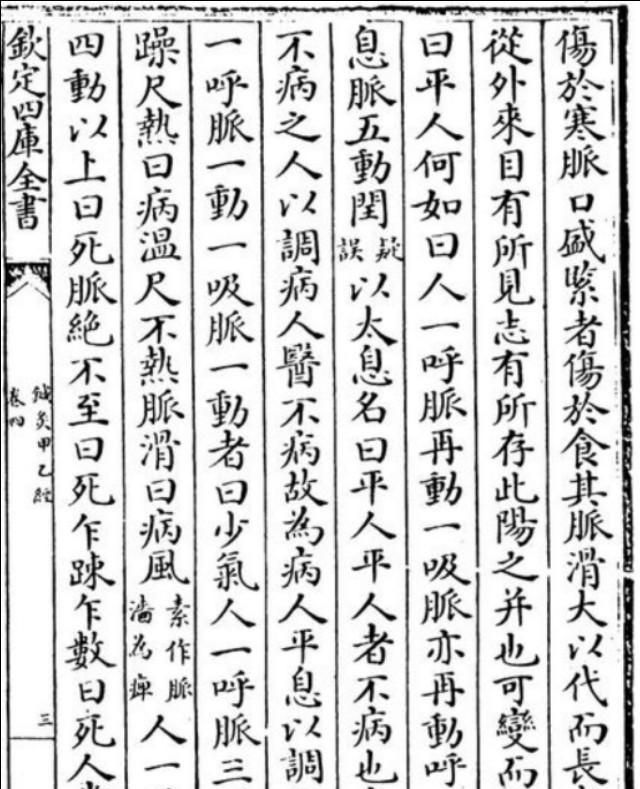 傷於寒脈口盛緊者傷於食其脈滑大以代而長
從外來目有所見志有所存此陽之并也可變而
曰平人何如曰人一呼脈再動一吸脈亦再動呼
息脈五動閏疑誤以太息名曰平人平人者不病也
不病之人以調病人醫不病故為病人平息以調
一呼脈一動一吸脈一動者曰少氣人一呼脈三
躁尺熱曰病温尺不熱脈滑曰病風素作脈濇為痺人一
四動以上曰死脈絶不至曰死乍踈乍數曰死人
欽定四庫全書
鍼灸甲乙經
卷四
三